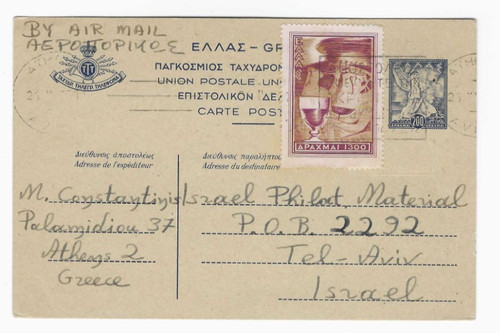 BY AIR MAIL
ΑΕΡΟΠΟΡΙΚΩΣ
ΕΛΛΑΣ-GR
ΠΑΓΚΟΣΜΙΟΣ ΤΑΧΥΔΡΟΜ
UNION POSTALE UN
ΕΠΙΣΤΟΛΙΚΟΝ "ΔΕΛ
CARTE POST
ΕΛΛΑΣ
ΔΡΑΧΜΑΙ 1300
200
Διεύθυνσις ἀποστολέως
Adresse de l'expéditeur
Διεύθυνσις παραλήπτου
Adresse du destinataire
M. Constantinis
Palamidiou 37
Athens 2
Greece
Israel Philat. Material
P.O.B. 2292
Tel-Aviv
Israel